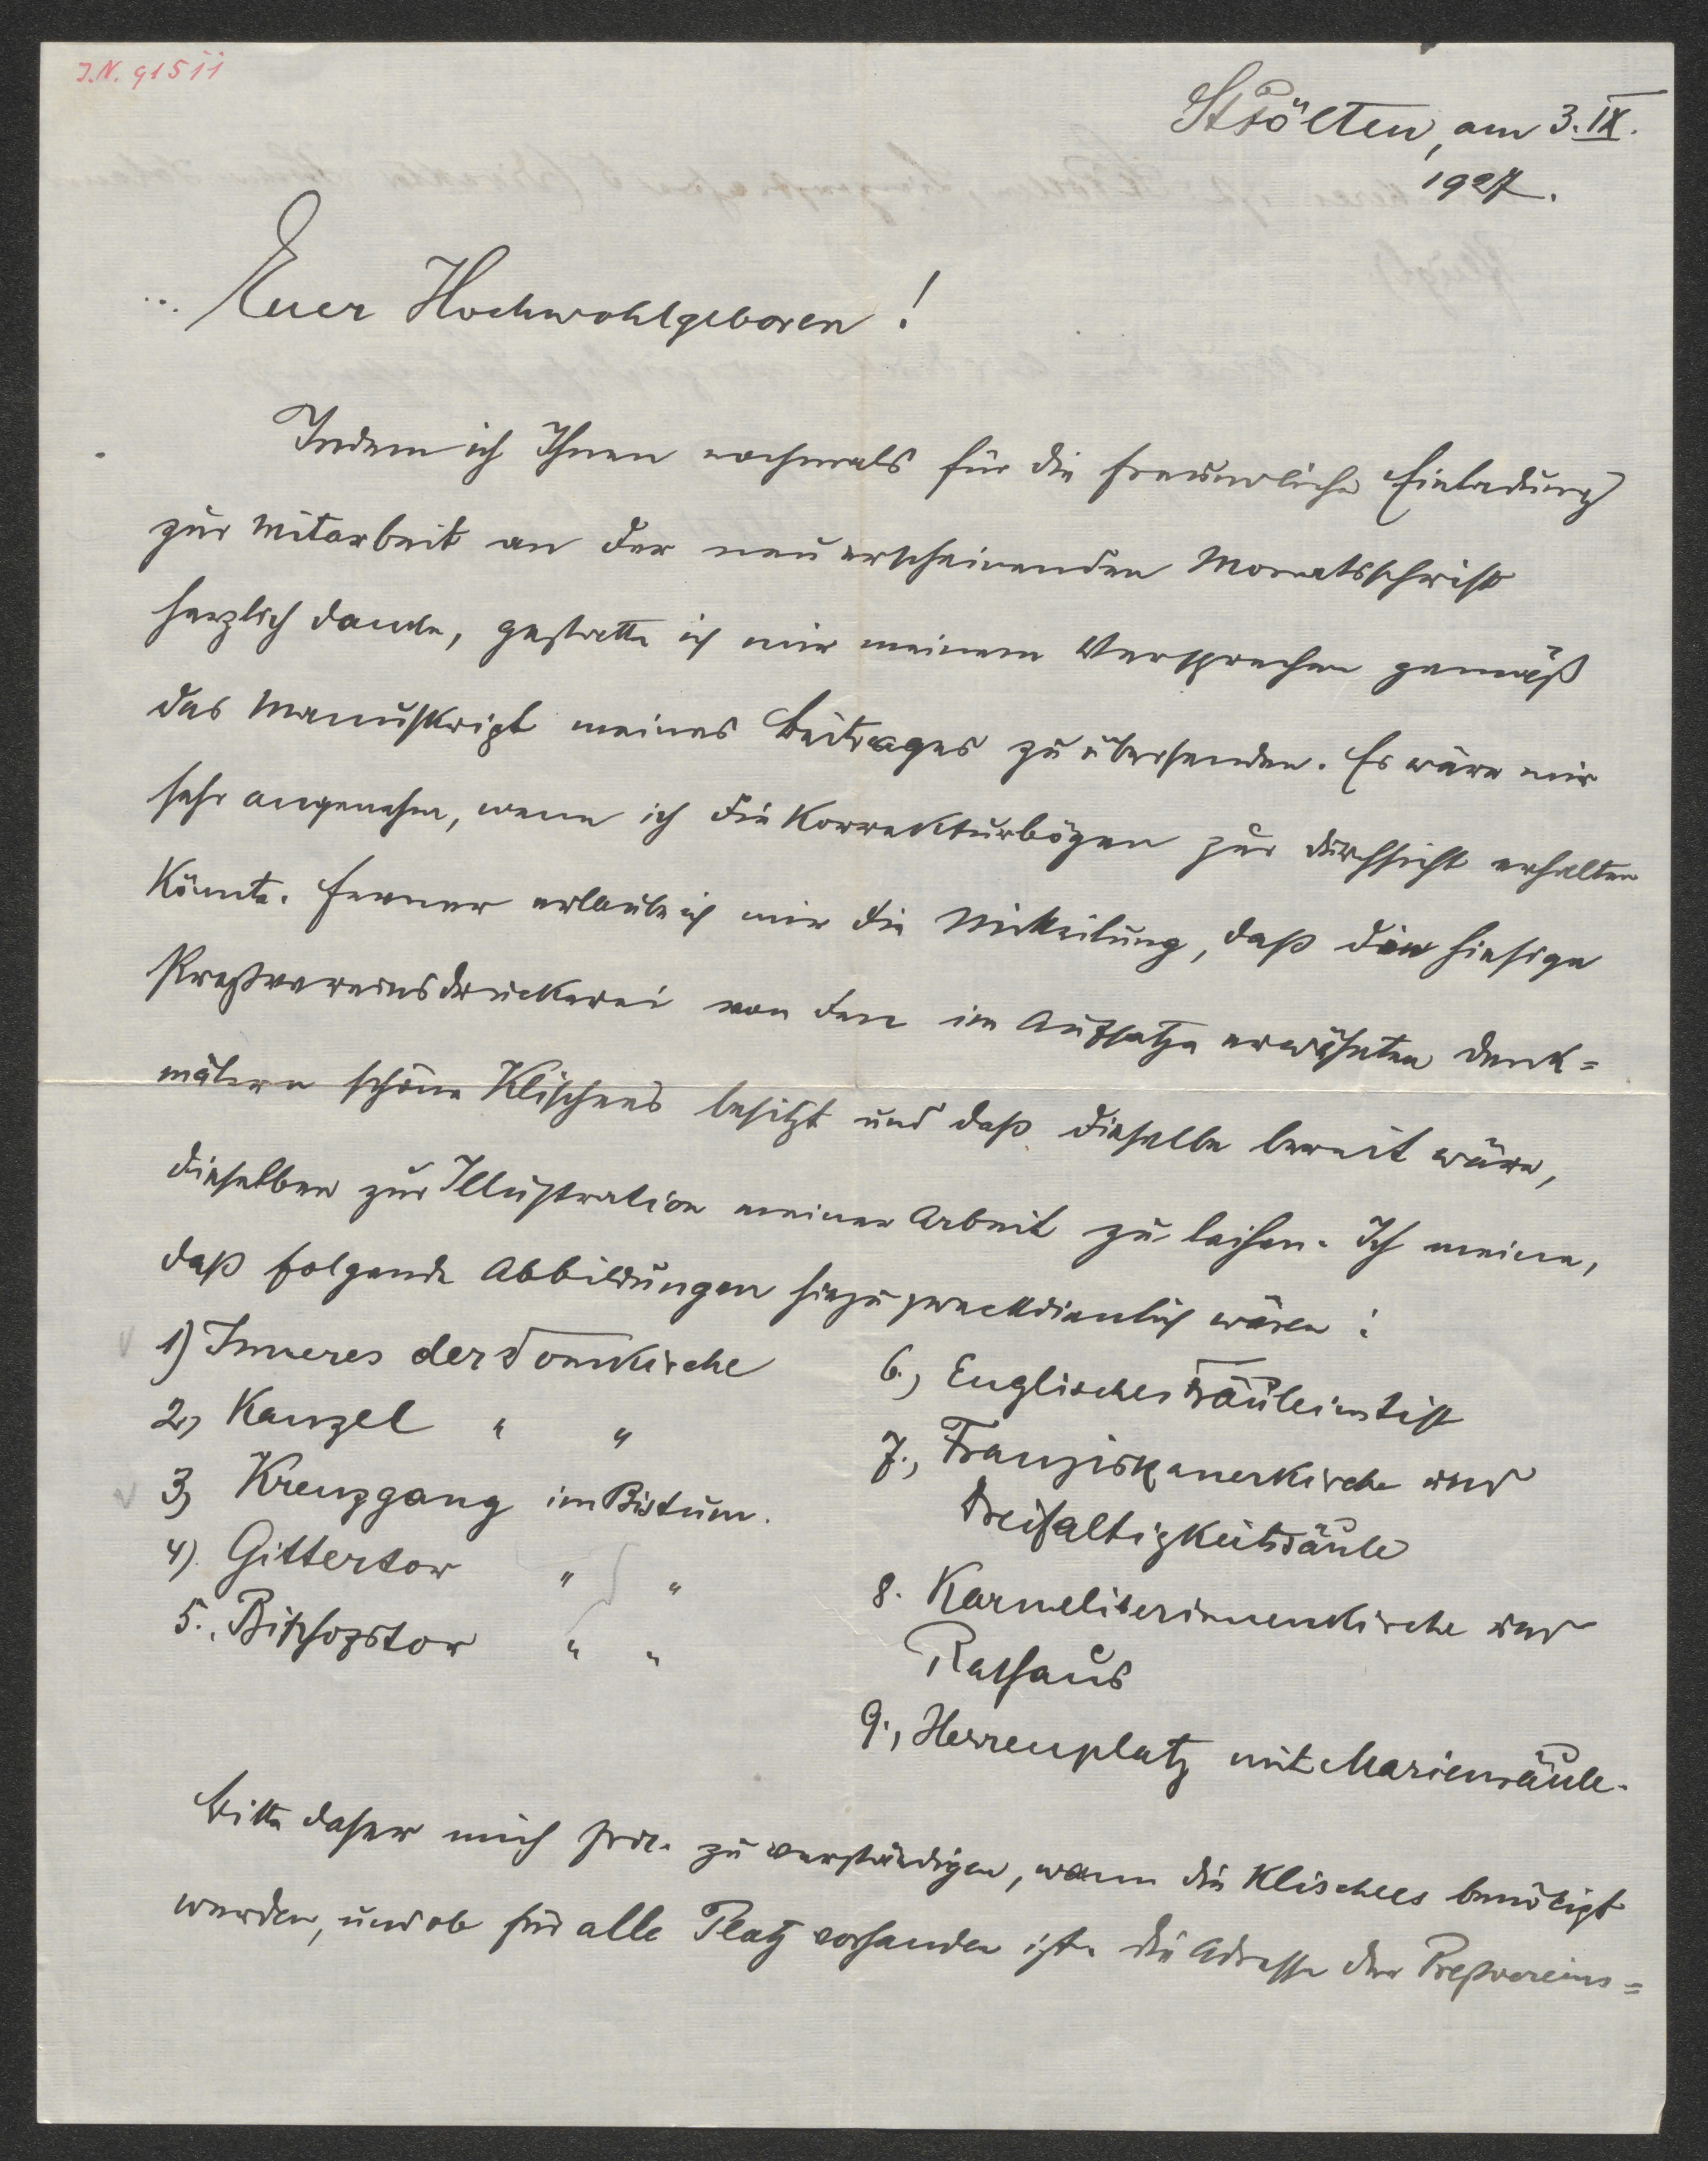 J.N. 91511
St Pölten, am 3. IX.
1927.
Euer Hochwohlgeboren!
Indem ich Ihnen nochmals für die freundliche Einladung
zur Mitarbeit an der neuerscheinenden Monatsschrift
herzlich danke, gestatte ich mir meinem Versprechen gemäß
das Manuskript meines Beitrages zu übersenden. Es wäre mir
sehr angenehm, wenn ich die Korrekturbögen zur Durchsicht erhalten
könnte. Ferner erlaube ich mir die Mitteilung, daß die hiesige
Preßvereinsdruckerei von den im Aufsatze erwähnten Denk=
mälern schöne Klischees besitzt und daß dieselbe bereit wäre,
dieselben zur Illustration meiner Arbeit zu leihen. Ich meine,
daß folgende Abbildungen hiezu zweckdienlich wären:
1) Inneres der Domkirche
2, Kanzel " "
3, Kreuzgang im Bistum.
4). Gittertor " "
5., Bischofstor " "
6., Englisches Fräuleinstift
7., Franziskanerkirche und
Dreifaltigkeitssäule
8. Karmeliterinnenkirche und
Rathaus
9., Herrenplatz mit Mariensäule.
Bitte daher mich zu verständigen, wann die Klischees benötigt
werden, und ob für alle Platz vorhanden ist. Die Adresse der Preßvereins=